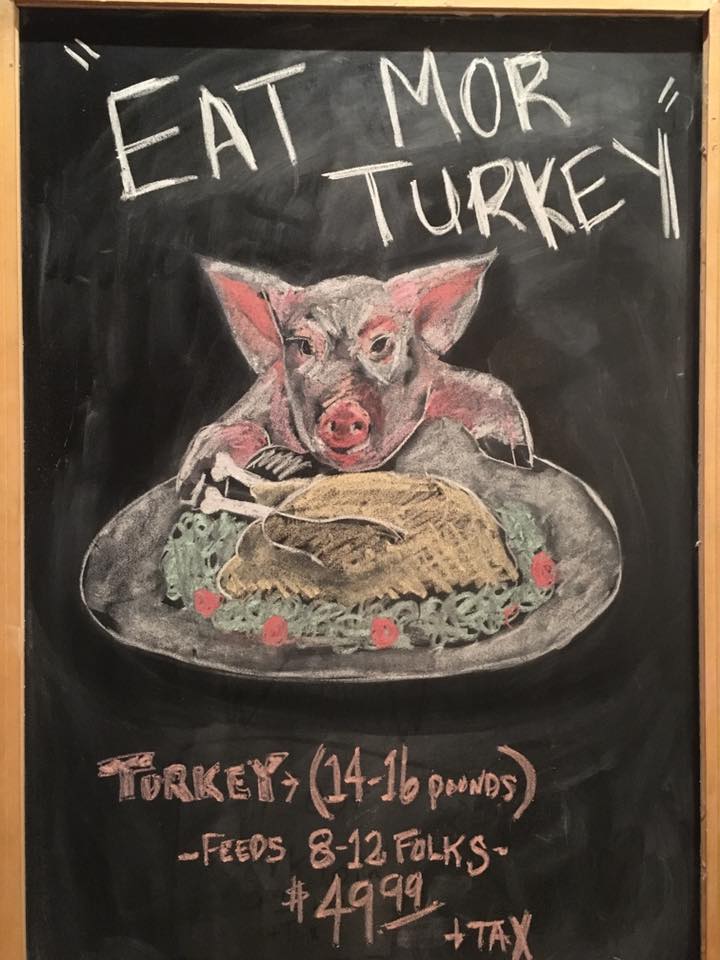 "EAT MOR
TURKEY"
TURKEY→ (14-16 POUNDS)
-FEEDS 8-12 FOLKS-
$49.99
+TAX